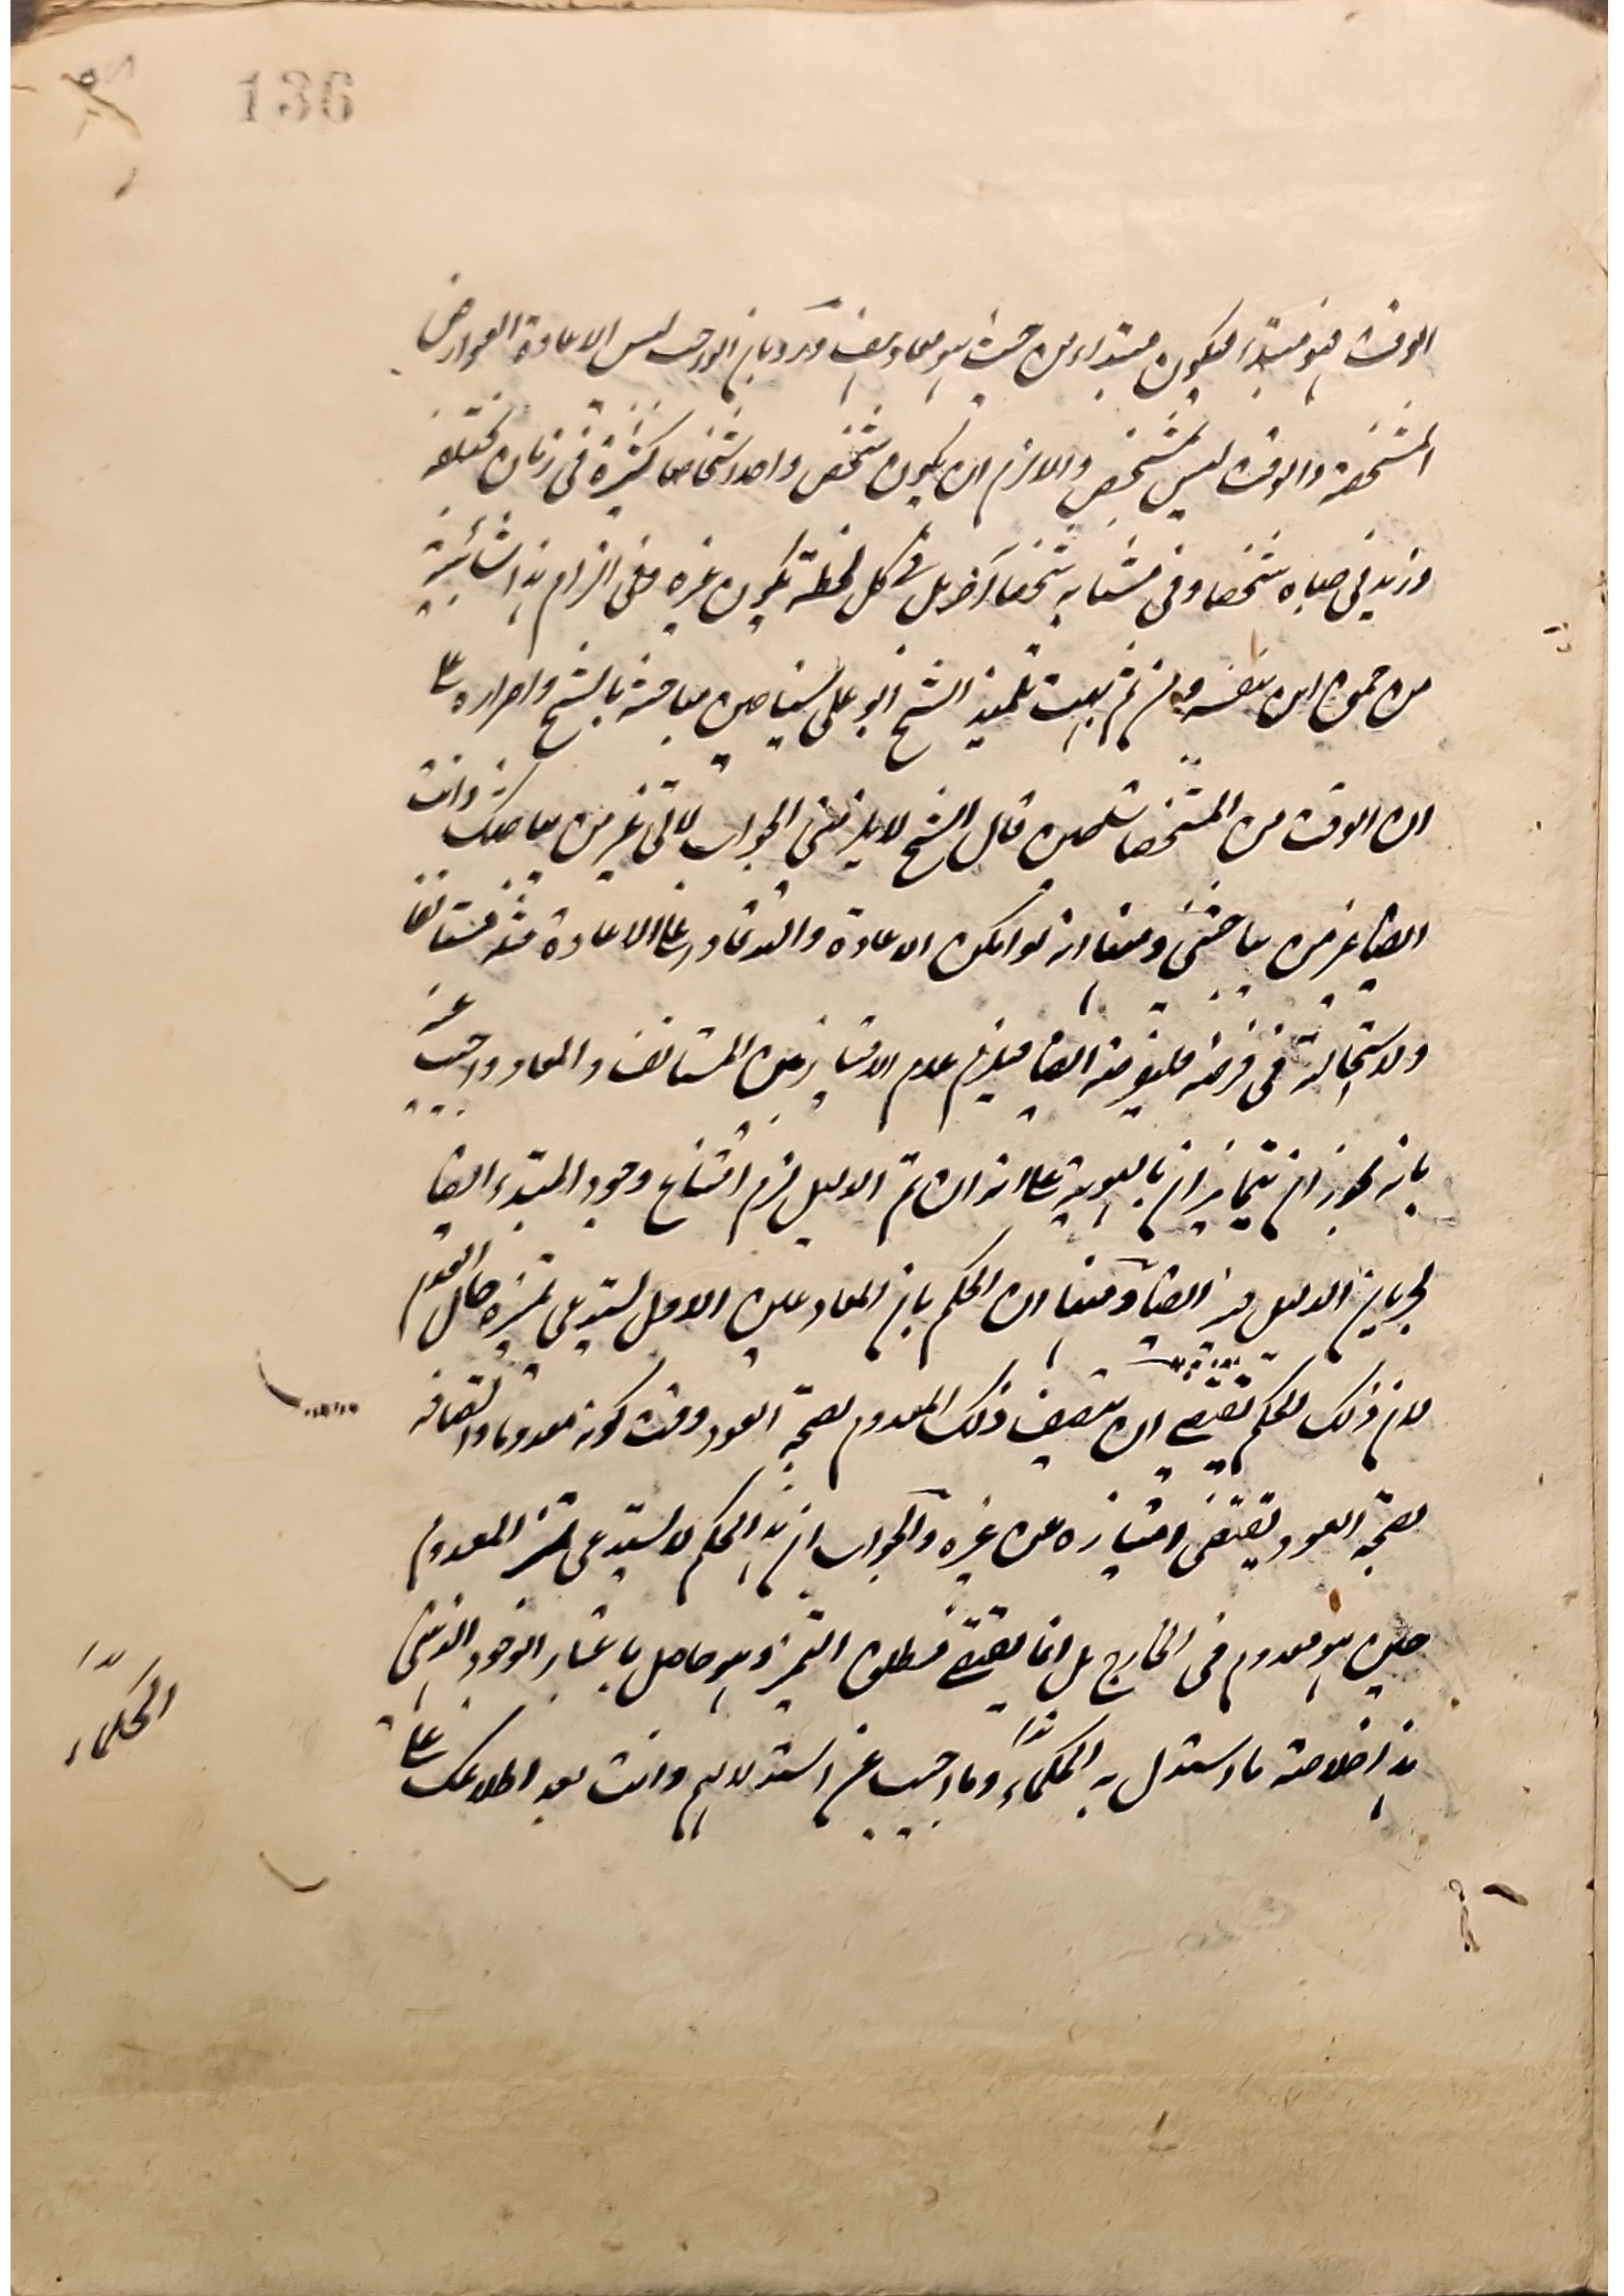 136
الوقت فهو مبتدء فيكون مبتداء من حيث هو معاد هف ورد بان الواجب ليس الا عادة العوارض
المشخصة والوقت ليس بمشخص والا لزم ان يكون شخص واحد اشخاصا كثيرة في زمان مختلفة
وزيد في صباه شخصا وفي مشابه شخصا آخر بل في كل لحظة يكون غيره وفي التزام هذا شائبة
من جموح ابن نفسه ومن ثم بهت تلميذ الشيخ ابو علي سينا حين مباحثة بالشيخ واصراره على
ان الوقت من المشخصات حين قال الشيخ لا يلزمني الجواب لاني غير من يباحثك وانت
ايضا غير من يباحثني ومنها انه لو امكن الاعادة والله قادر على الاعادة مثله مستانفا
ولا استحالة في فرضه فليفرضه ايضا فيلزم عدم الامتياز بين المستانف والمعاد واجيب عنه
بانه يجوز ان يتمايزان بالهوية على انه ان تم الدليل لزم امتناع وجود المبتدء ايضا
لجريان الدليل فيه ايضا ومنها ان الحكم بان المعاد عين الاول يستدعي تميزه حال العدم
لان ذلك الحكم يقتضي ان يتصف ذلك المعدوم بصحة العود وقت كونه معدوما واتصافه
بصحة العود يقتضي امتيازه عن غيره والجواب ان هذا الحكم لا يستدعي تميز المعدوم
حين هو معدوم في الخارج بل انما يقتضي مطلق التميز وهو حاصل باعتبار الوجود الذهني
هذا خلاصة ما استدل به الحكماء وما اجيب عن استدلالهم وانت بعد اطلاعك على
الحكماء